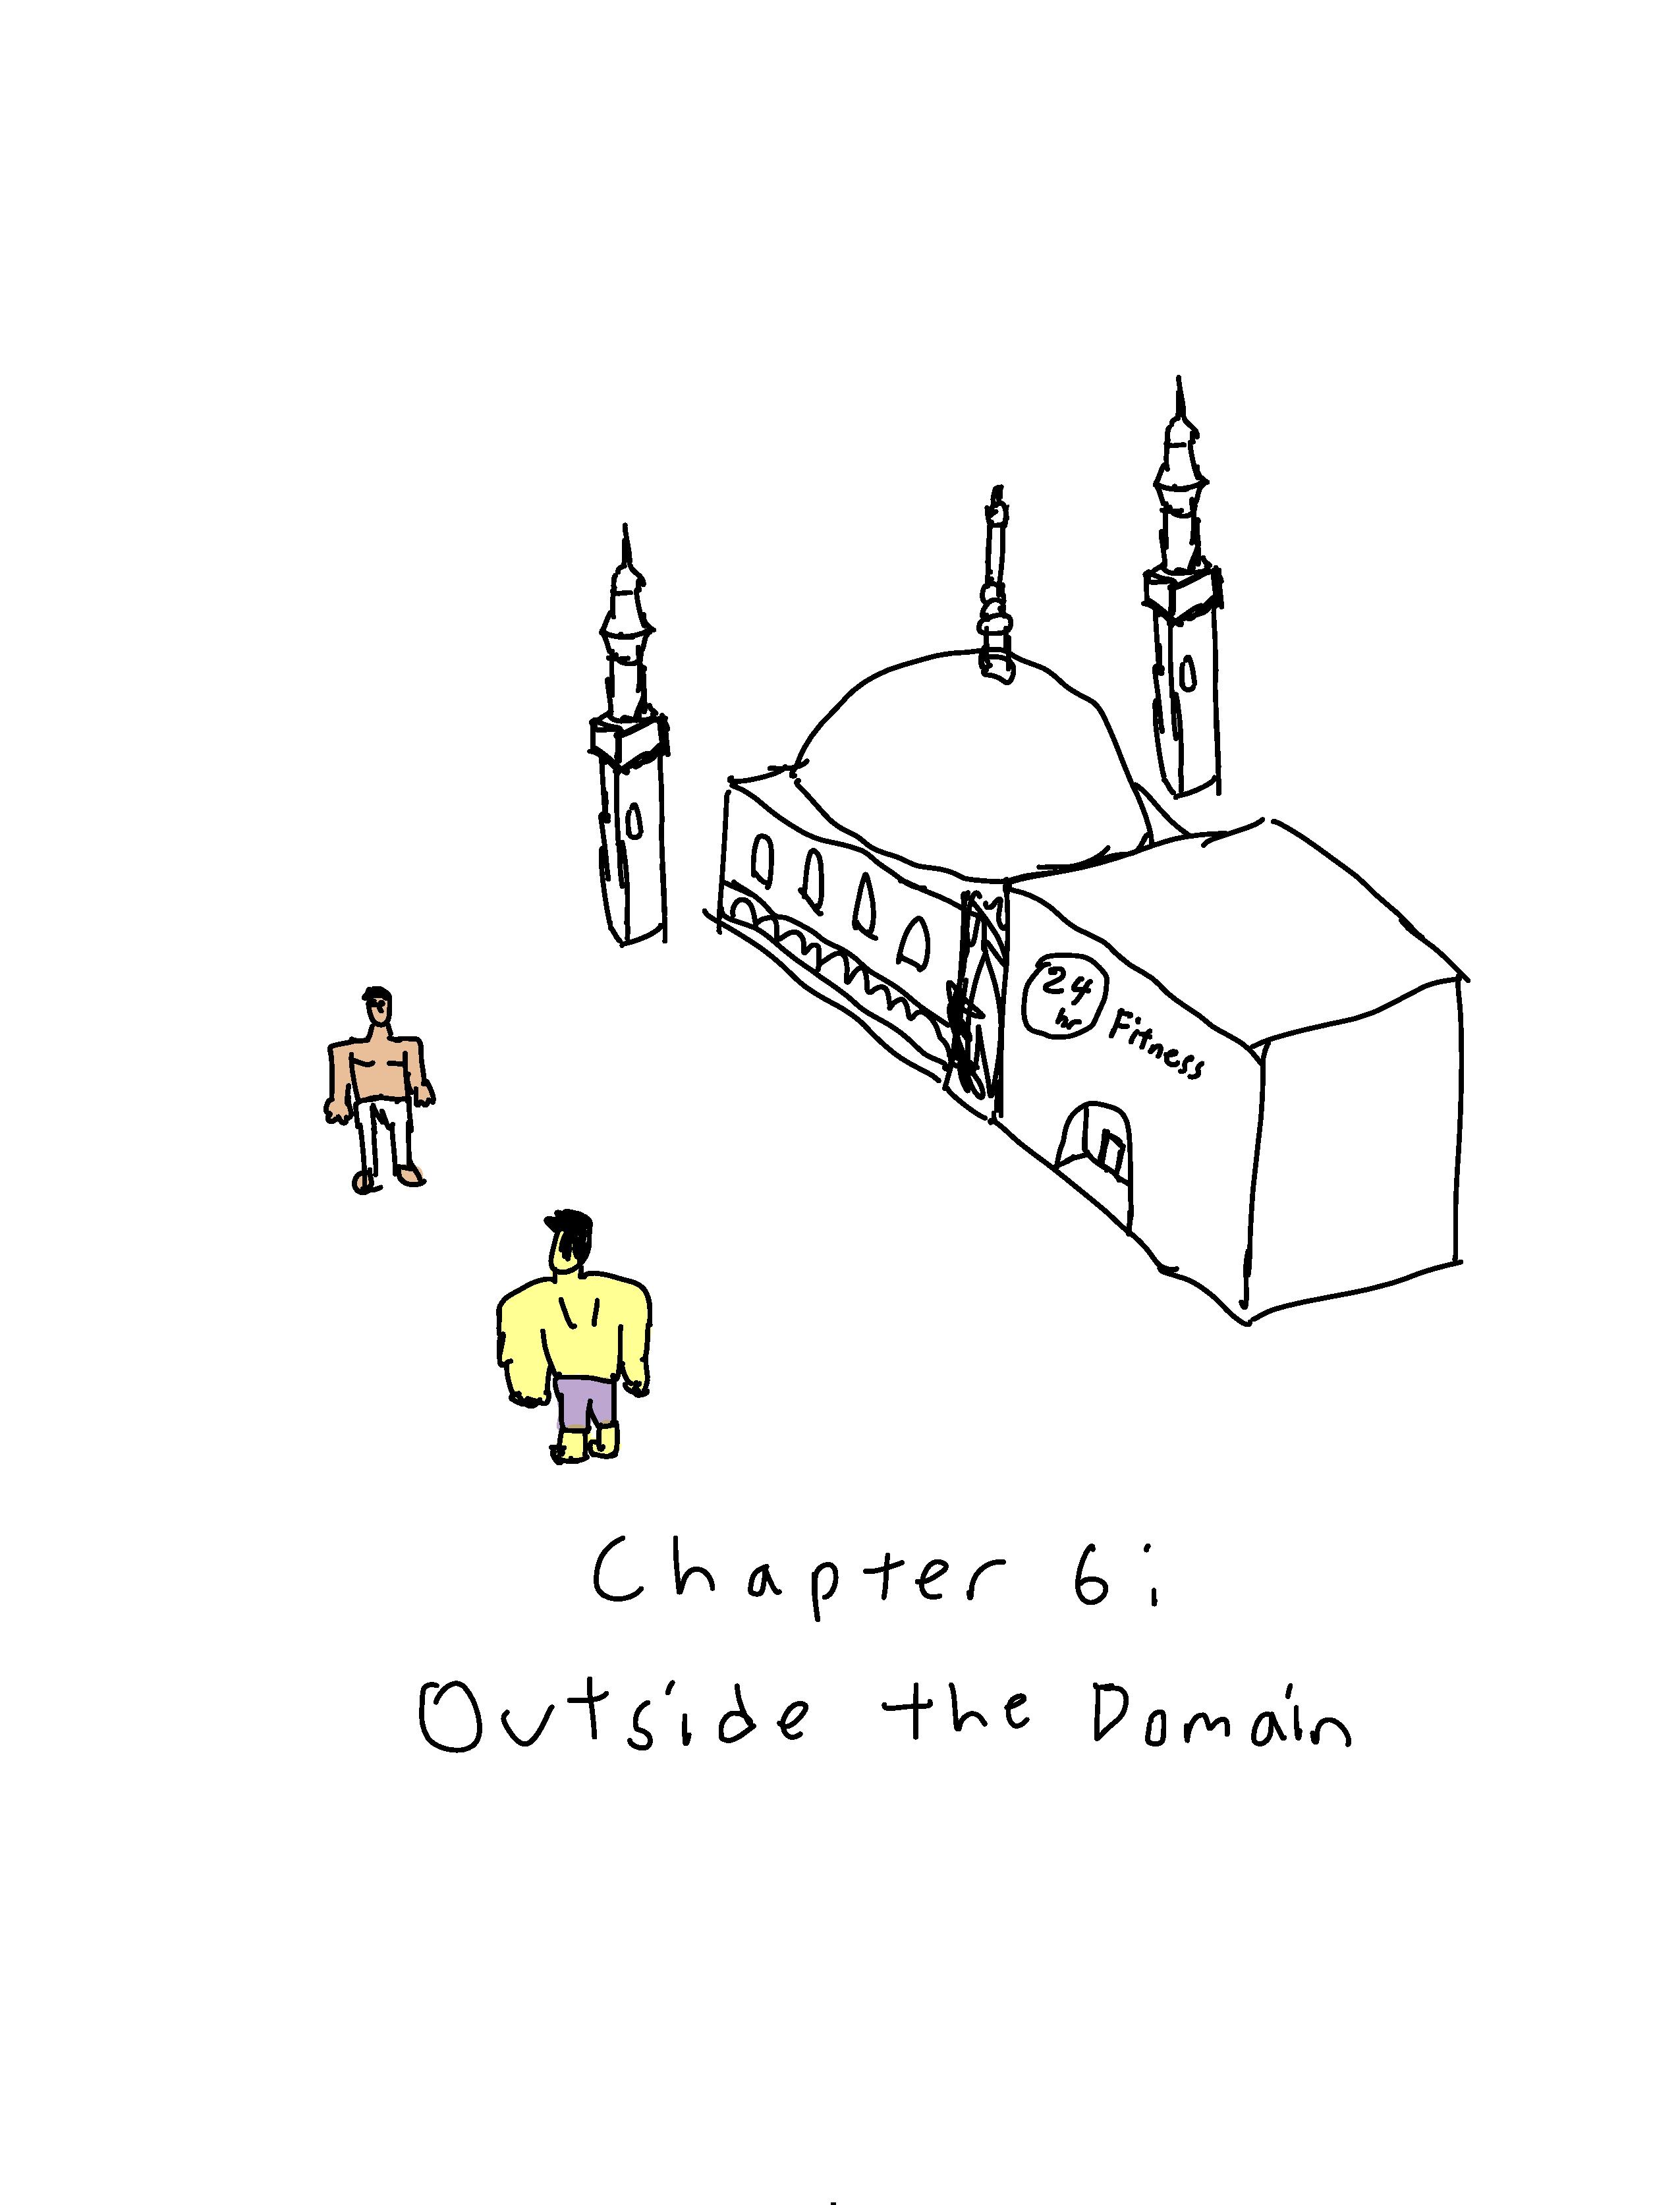 24
hr
Fitness
Chapter 6:
Outside the Domain